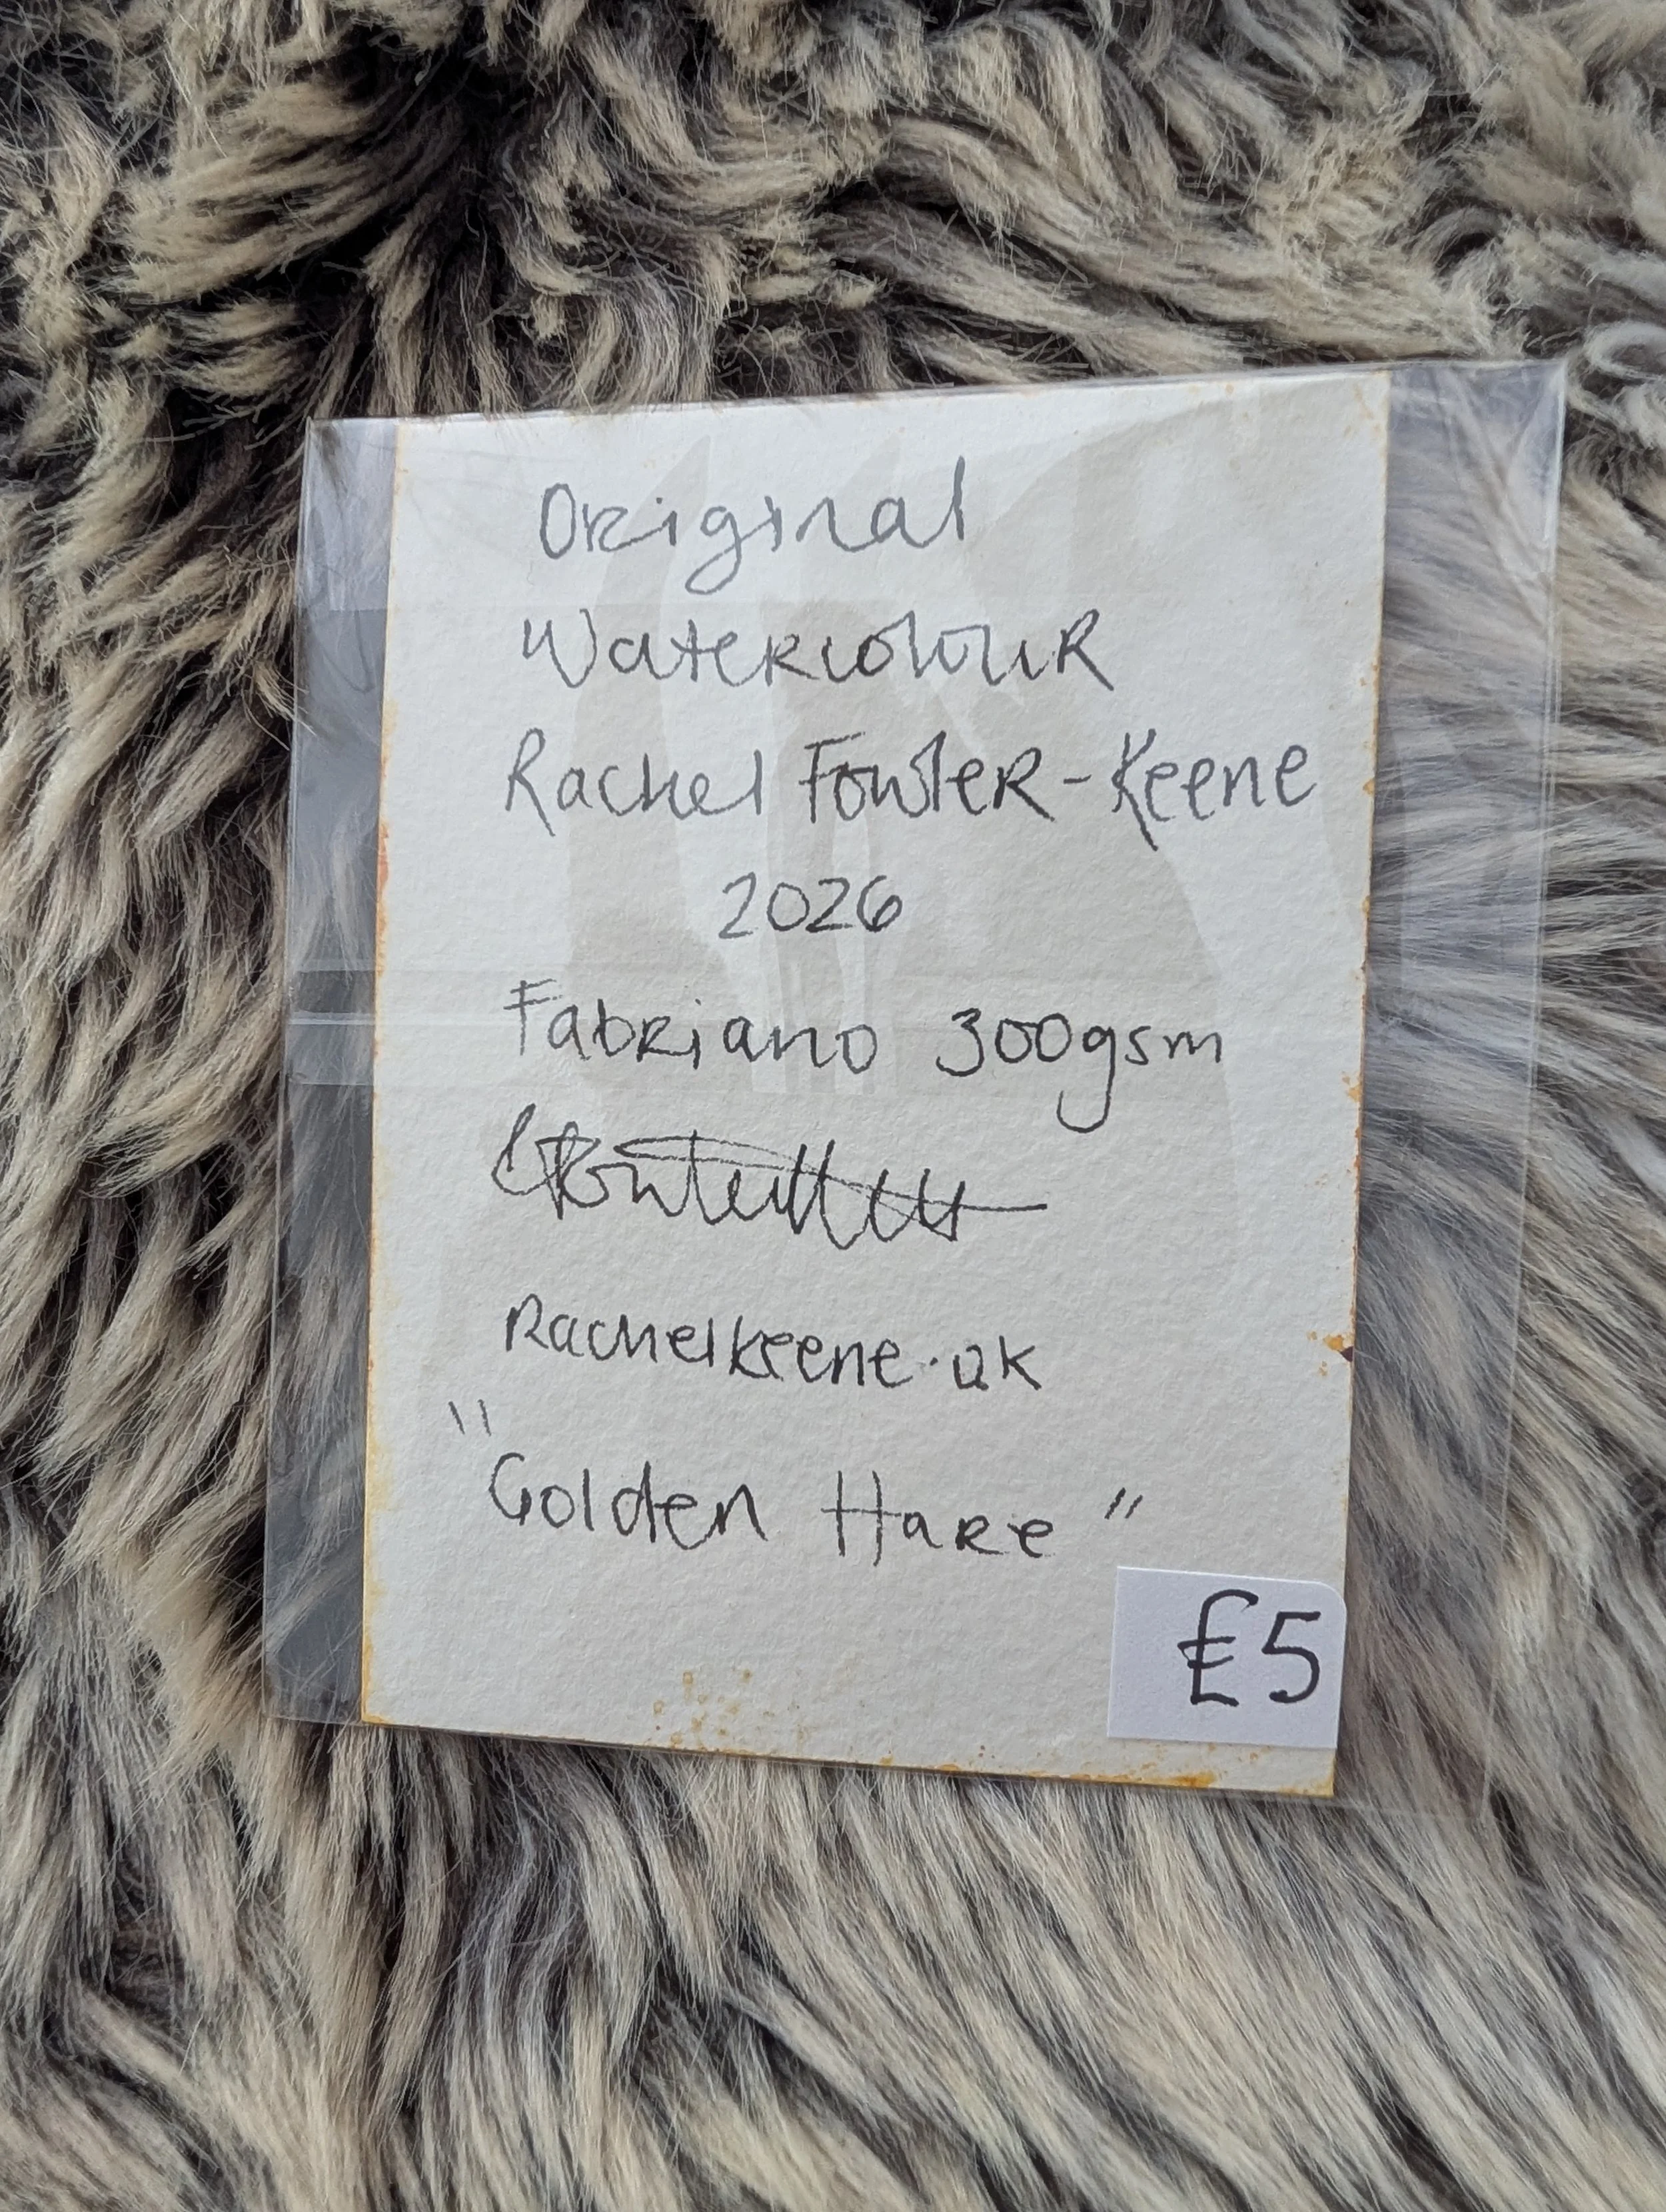 Original
Watercolour
Rachel Fowler-Keene
2026
Fabriano 300gsm
Rachelkeene.uk
"Golden Hare"
£5